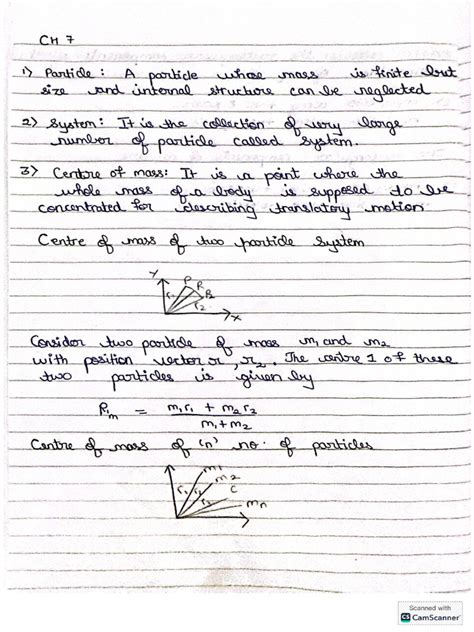 CH 7
1) Particle : A particle whose mass is finite but
size and internal structure can be neglected
2) System : It is the collection of very large
number of particle called system.
3) Centre of mass: It is a point where the
whole mass of a body is supposed to be
concentrated for describing translatory motion
Centre of mass of two particle system
Y
P R
r1 P2
r2
X
Consider two particle of mass m1 and m2
with position vector r, r2. The centre 1 of these
two particles is given by
Rm = m1r1 + m2r2
m1+m2
Centre of mass of (n) no. of particles
m1
m2
r1 r2 C
mn
Scanned with
CS CamScanner